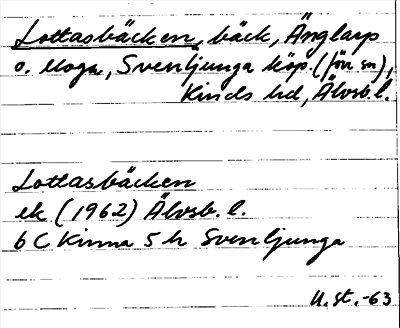 Lottasbäcken, bäck, Änglarp
o. Moga, Svenljunga köp. (förr sn),
Kinds hd, Älvsb. l.
Lottasbäcken
ek (1962) Älvsb. l.
6 C Kinna 5 h Svenljunga
U. st. -63